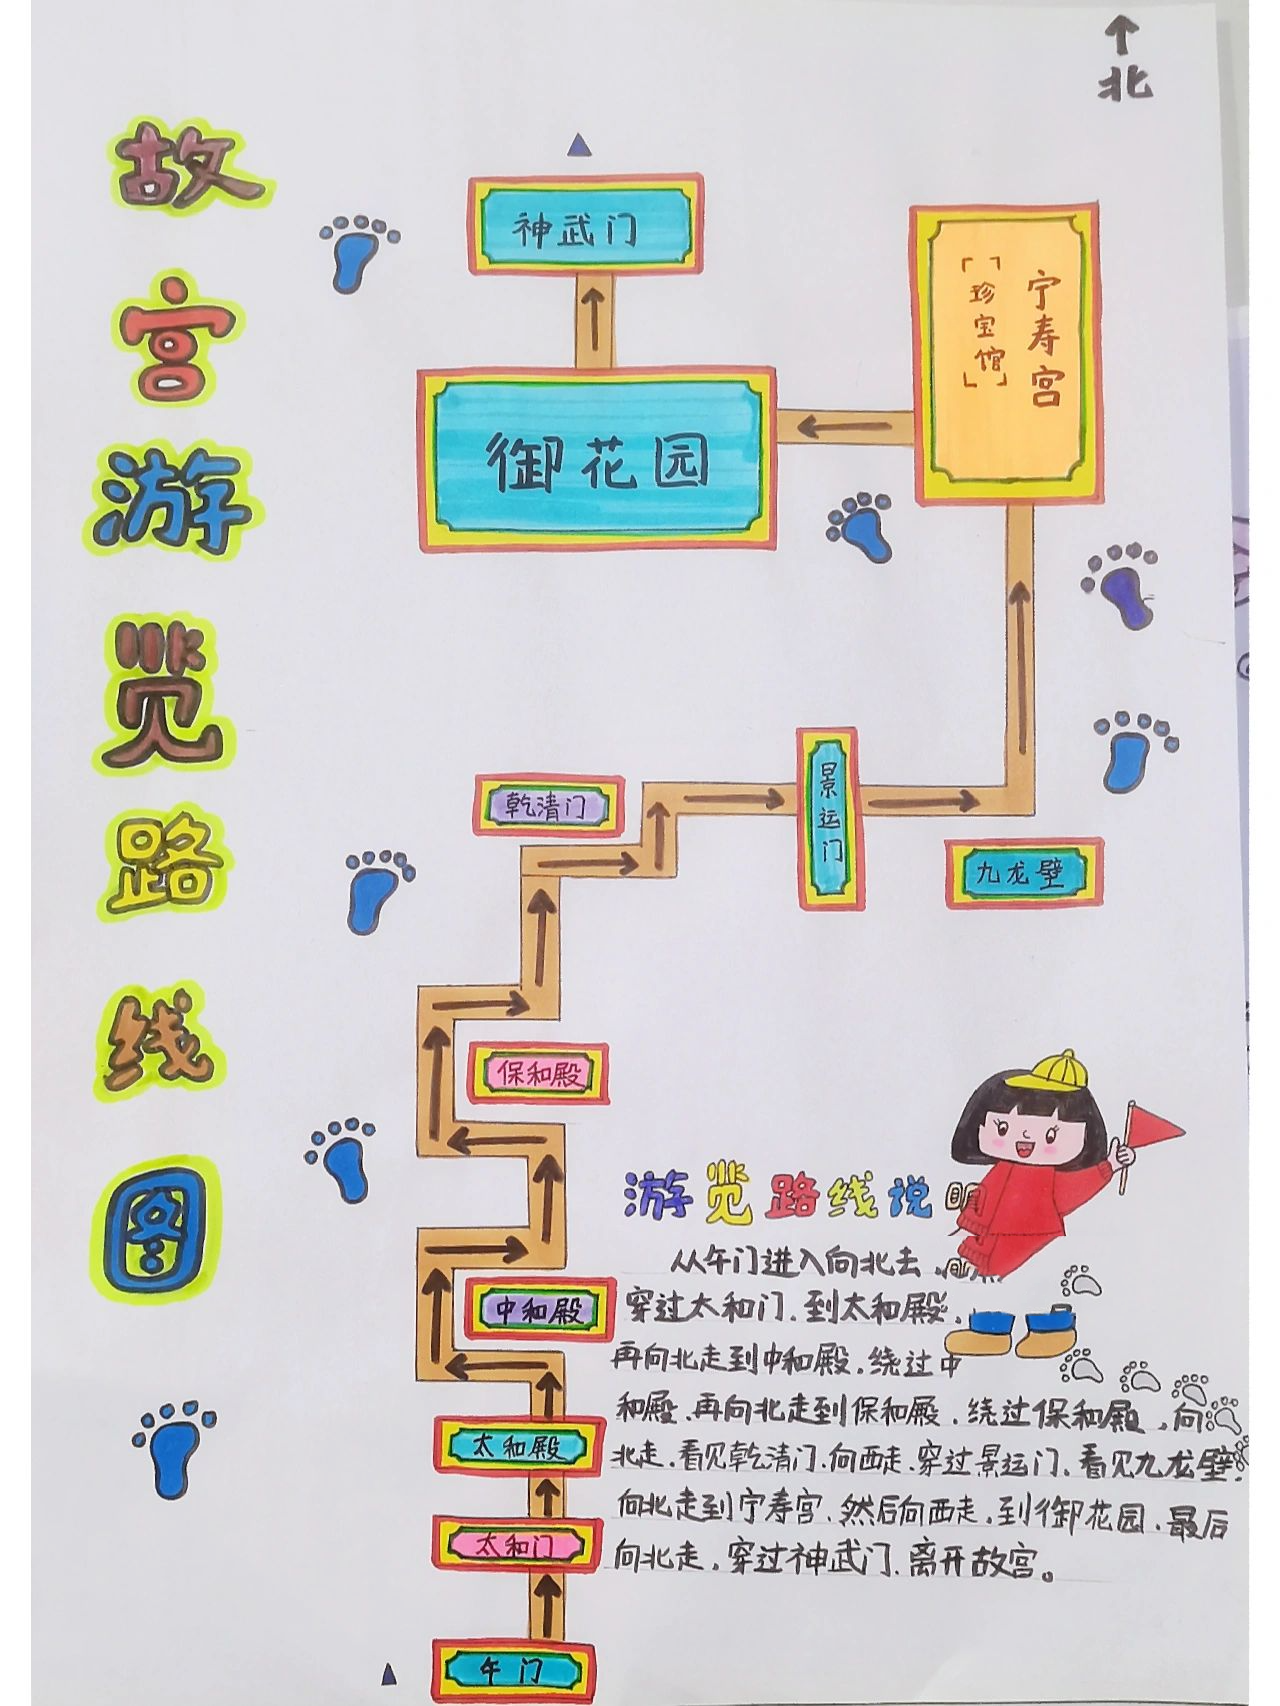 北
故宫游览路线图
神武门
宁寿宫
「珍宝馆」
御花园
景运门
乾清门
九龙壁
保和殿
中和殿
太和殿
太和门
午门
游览路线说明
从午门进入向北去,
穿过太和门.到太和殿.
再向北走到中和殿.绕过中
和殿.再向北走到保和殿.绕过保和殿.向
北走.看见乾清门.向西走.穿过景运门.看见九龙壁.
向北走到宁寿宫.然后向西走.到御花园.最后
向北走.穿过神武门.离开故宫。